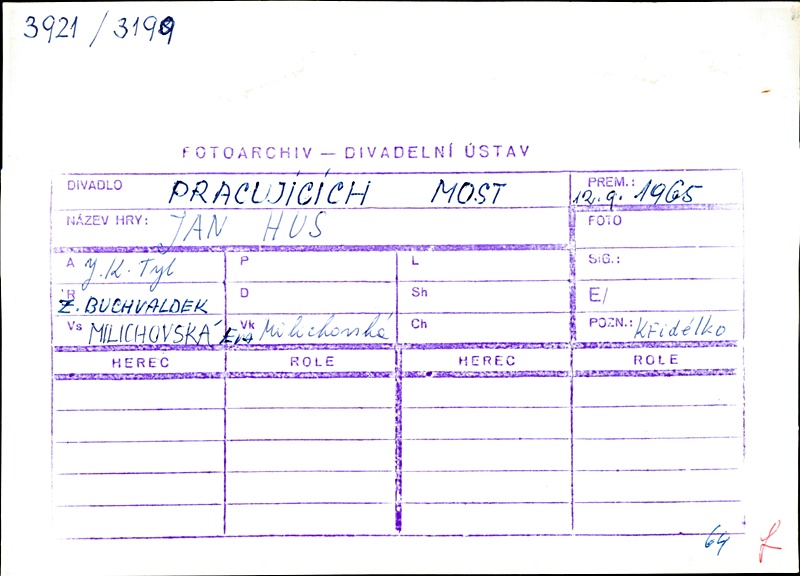 3921 / 3199
FOTOARCHIV — DIVADELNÍ ÚSTAV
DIVADLO PRACUJÍCÍCH MOST PREM.: 12.9. 1965
NÁZEV HRY: JAN HUS FOTO
A J. K. Tyl P L SIG.:
R Z. BUCHVALDEK D Sh E/
Vs MILICHOVSKÁ EVA Vk Milichovská Ch POZN.: Křidélko
HEREC ROLE HEREC ROLE
64